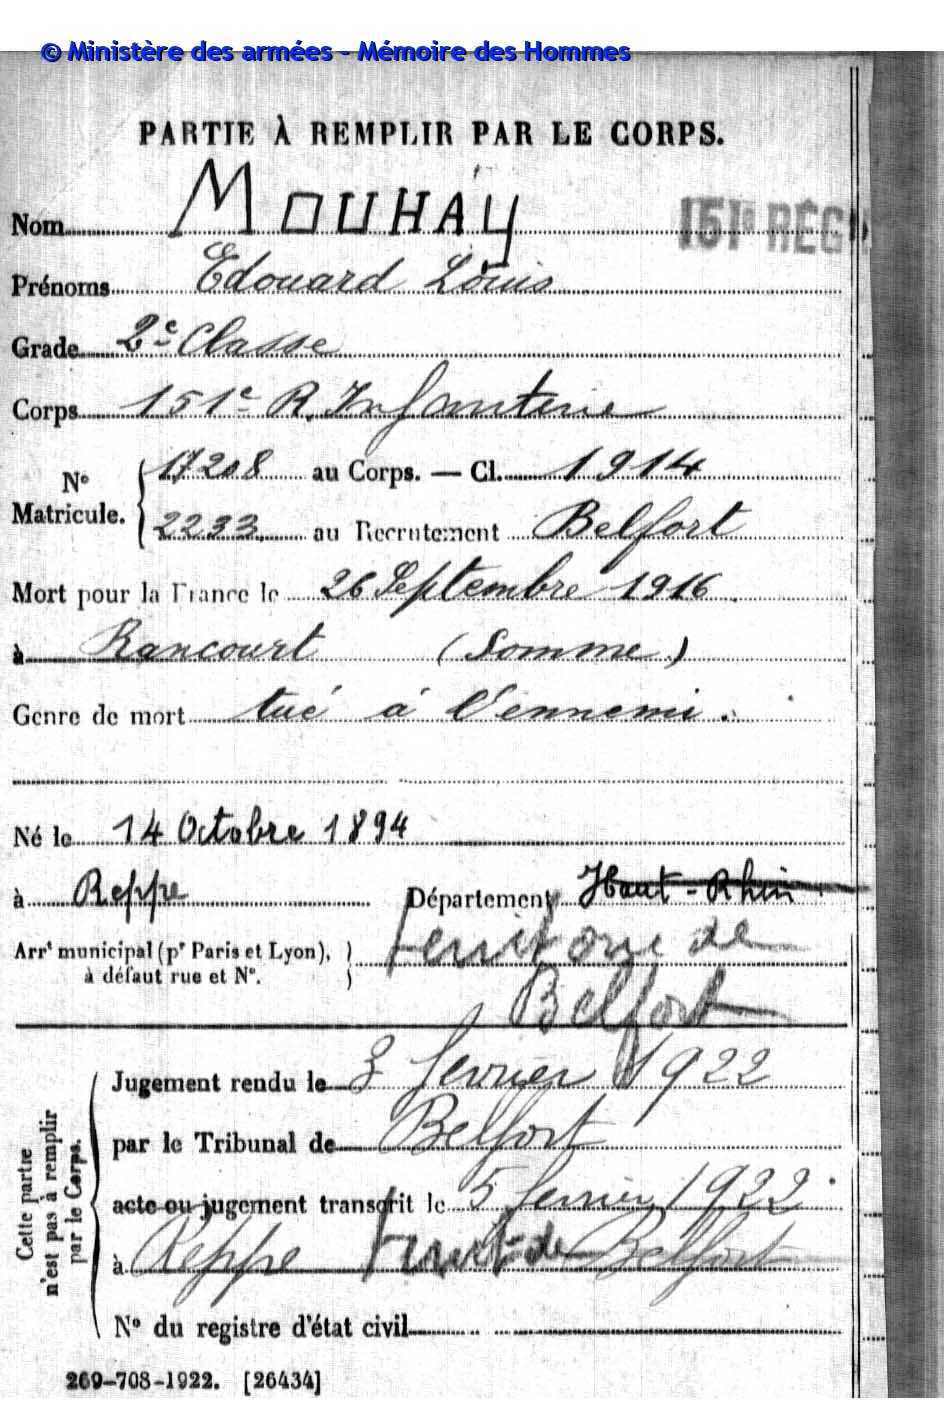 © Ministère des armées - Mémoire des Hommes
PARTIE À REMPLIR PAR LE CORPS.
Nom MOUHAY 151e RÉG
Prénoms Edouard Louis
Grade 2e Classe
Corps 151e R. Infanterie
No Matricule. 17208 au Corps. — Cl. 1914
2233 au Recrutement Belfort
Mort pour la France le 26 Septembre 1916
à Rancourt (Somme)
Genre de mort tué à l'ennemi.
Né le 14 Octobre 1894
à Reppe Département Haut-Rhin
Arrt municipal (pr Paris et Lyon), à défaut rue et No. territoire de
Belfort
Cette partie n'est pas à remplir par le Corps.
Jugement rendu le 3 février 1922
par le Tribunal de Belfort
acte ou jugement transcrit le 5 février 1922
à Reppe territ de Belfort
No du registre d'état civil
269-708-1922. [26434]